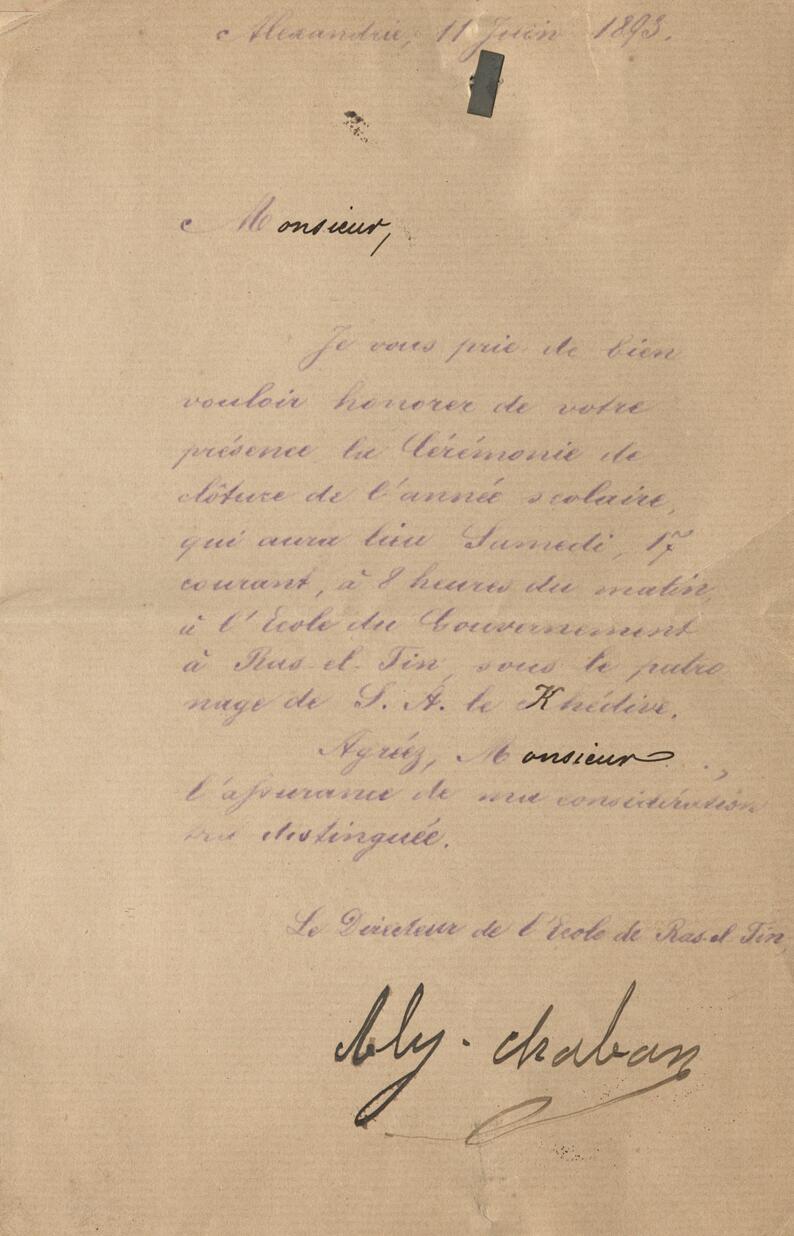 Alexandrie, 11 Juin 1893.
Monsieur,
Je vous prie de bien
vouloir honorer de votre
présence la Cérémonie de
clôture de l'année scolaire,
qui aura lieu Samedi, 17
courant, à 8 heures du matin,
à l'École du Gouvernement
à Ras-el-Tin, sous le patro
nage de S. A. le Khédive.
Agréez, Monsieur,
l'assurance de ma considération
très distinguée.
Le Directeur de l'École de Ras-el-Tin,
Aly. Chaban